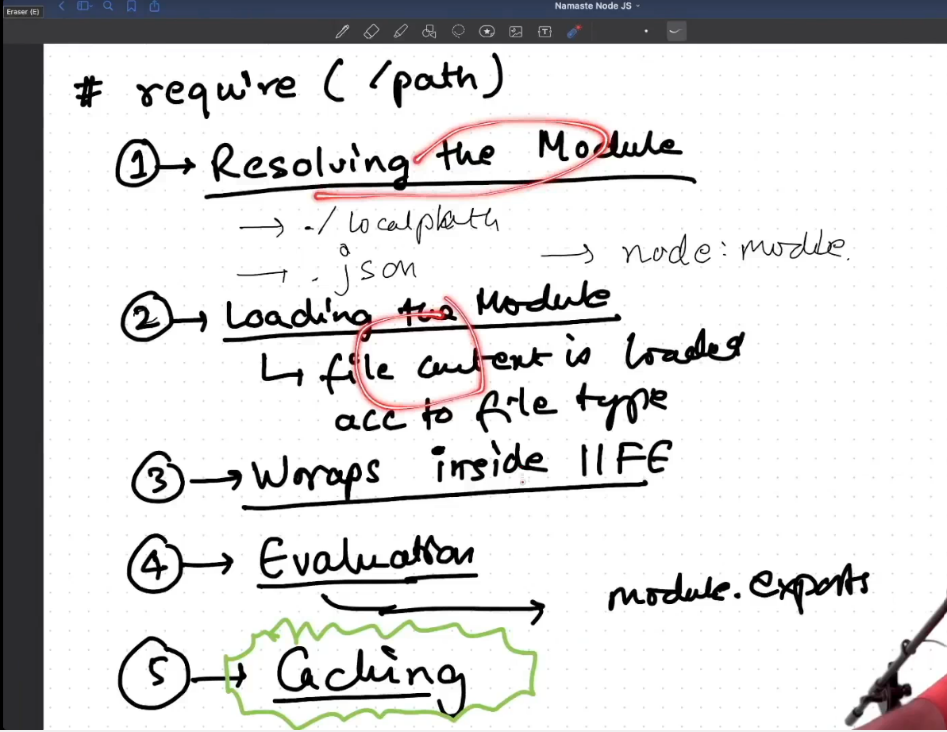 Eraser (E)
Namaste Node JS
# require ( /path)
① → Resolving the Module
→ ./ localpath
→ .json → node: module.
② → Loading the Module
↳ file content is loaded
acc to file type
③ → Wraps inside IIFE
④ → Evaluation
→ module.exports
⑤ → Caching